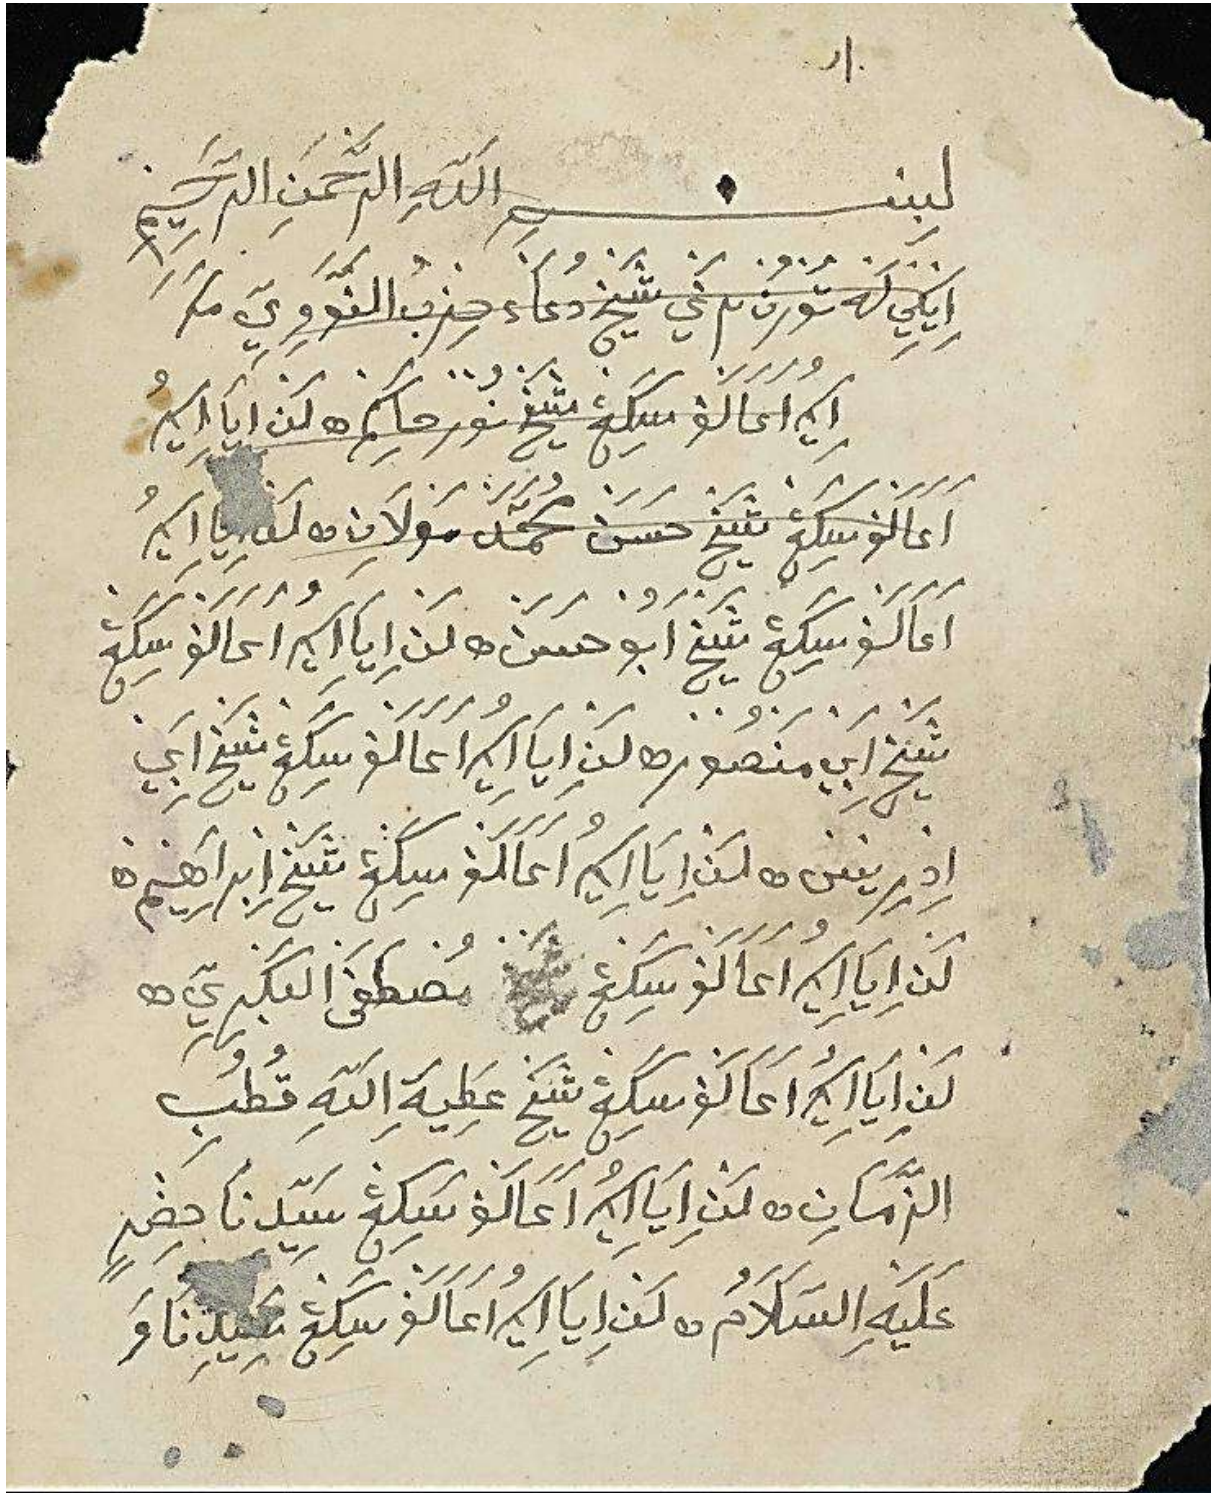 بِسْمِ اللَّهِ الرَّحْمَنِ الرَّحِيْمِ
اِيْكِي لَهْ تُوْرُنْ شَيْخْ دُعَاء حِزْبُ النَّوَوِيِّ مَكَ
اِيكُ اعَالَفْ سَكِڠْ شَيْخْ نُوْر حَاكِمْ ه لَنْ اِيَا اِيكُ
اَعَالَفْ سَكِڠْ شَيْخْ حَسَنْ مُحَمَّدْ مَوْلَانِ ه لَنْ اِيَا اِيكُ
اَعَالَفْ سَكِڠْ شَيْخْ اَبُوْ حَسَنْ ه لَنْ اِيَا اِيكُ اعَالَفْ سَكِڠْ
شَيْخْ اَبِيْ مَنْصُوْر ه لَنْ اِيَا اِيكُ اعَالَفْ سَكِڠْ شَيْخْ اَبِيْ
اِدْرِيْسْ ه لَنْ اِيَا اِيكُ اعَالَفْ سَكِڠْ شَيْخْ اِبْرَاهِيْمْ ه
لَنْ اِيَا اِيكُ اعَالَفْ سَكِڠْ مُصْطَفَى الْبَكْرِيِّ ه
لَنْ اِيَا اِيكُ اَعَالَفْ سَكِڠْ شَيْخْ عَطِيَةِ اللَّهِ قُطُبِ
الزَّمَانِ ه لَنْ اِيَا اِيكُ اَعَالَفْ سَكِڠْ سَيِّدِنَا حِضْرٍ
عَلَيْهِ السَّلَامُ ه لَنْ اِيَا اِيكُ اعَالَفْ سَكِڠْ سَيِّدِنَا وَ